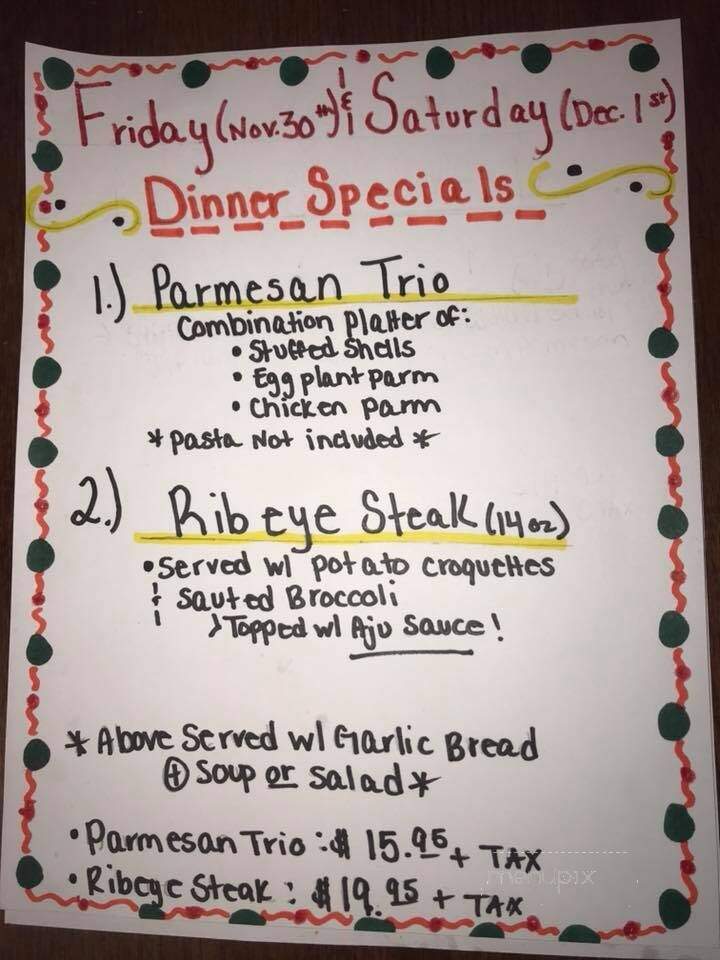 Friday (Nov. 30th) & Saturday (Dec. 1st)
Dinner Specials
1.) Parmesan Trio
Combination Platter of:
• Stuffed Shells
• Eggplant Parm
• Chicken Parm
* Pasta Not included *
2.) Rib eye Steak (14 oz)
• Served w/ potato croquettes
& Sauted Broccoli
> Topped w/ Aju Sauce!
* Above Served w/ Garlic Bread
+ Soup or Salad *
• Parmesan Trio : $ 15.95 + TAX
• Ribeye Steak : $ 19.95 + TAX
menupix